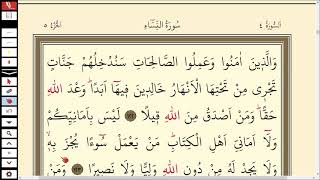 اَلسُّورَةُ ٤ سُورَةُ النِّسَاءِ اَلْجُزْءُ ٥
وَالَّذ۪ينَ اٰمَنُوا وَعَمِلُوا الصَّالِحَاتِ سَنُدْخِلُهُمْ جَنَّاتٍ
تَجْر۪ي مِنْ تَحْتِهَا الْاَنْهَارُ خَالِد۪ينَ ف۪يهَٓا اَبَدًاۜ وَعْدَ اللّٰهِ
حَقًّاۜ وَمَنْ اَصْدَقُ مِنَ اللّٰهِ ق۪يلًا ﴿١٢٢﴾ لَيْسَ بِاَمَانِيِّكُمْ
وَلَٓا اَمَانِيِّ اَهْلِ الْكِتَابِۜ مَنْ يَعْمَلْ سُٓوءًا يُجْزَ بِه۪ۙ
وَلَا يَجِدْ لَهُ مِنْ دُونِ اللّٰهِ وَلِيًّا وَلَا نَص۪يرًا ﴿١٢٣﴾ وَمَنْ